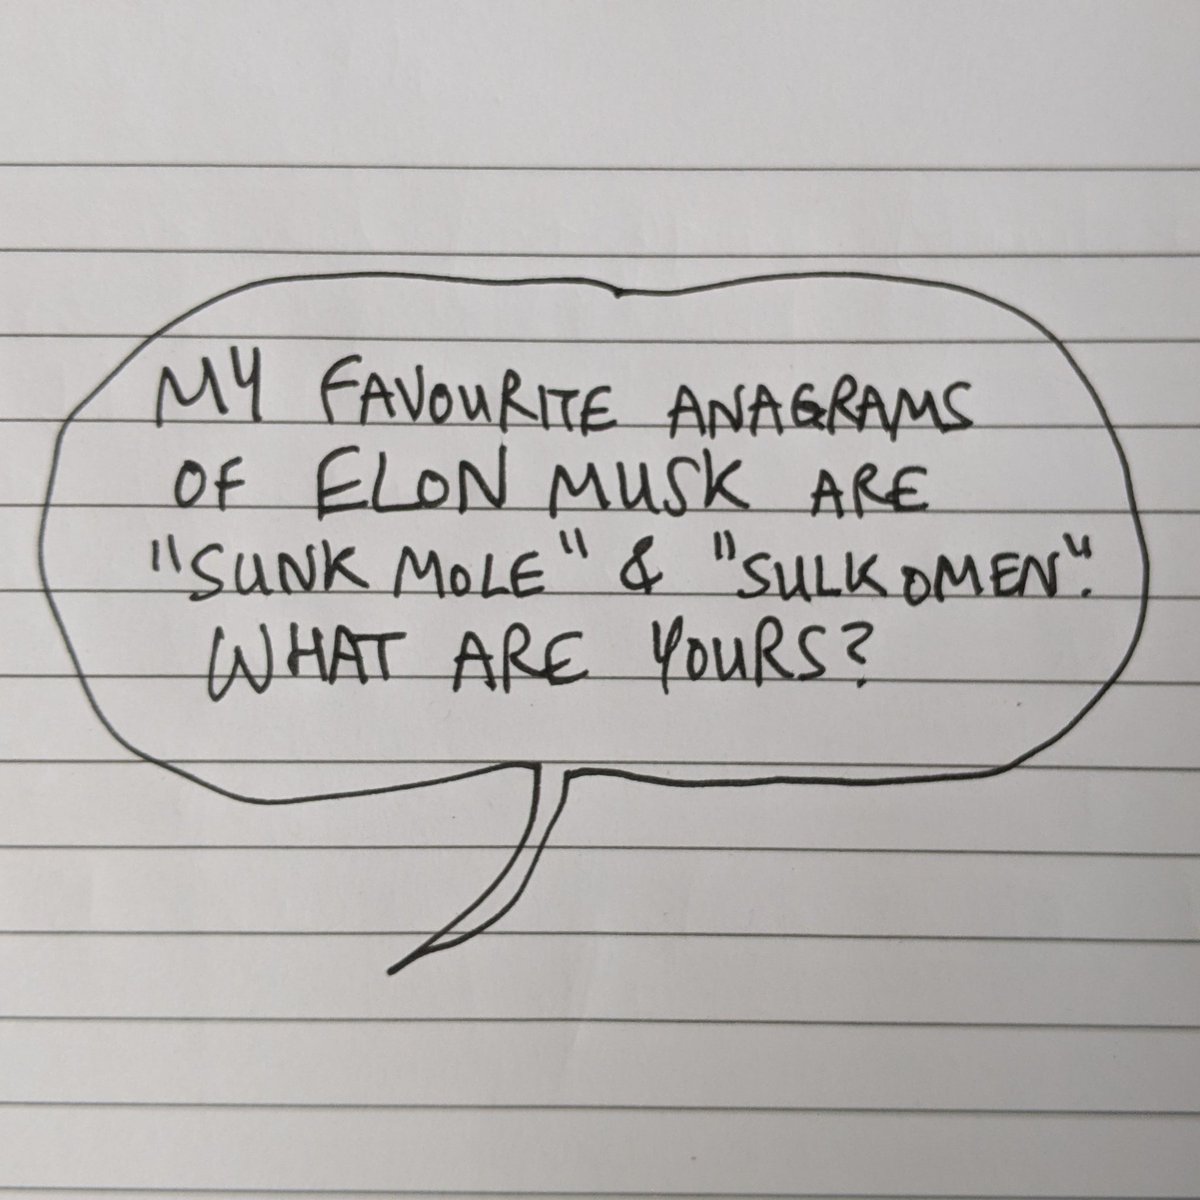 MY FAVOURITE ANAGRAMS
OF ELON MUSK ARE
"SUNK MOLE" & "SULK OMEN".
WHAT ARE YOURS?